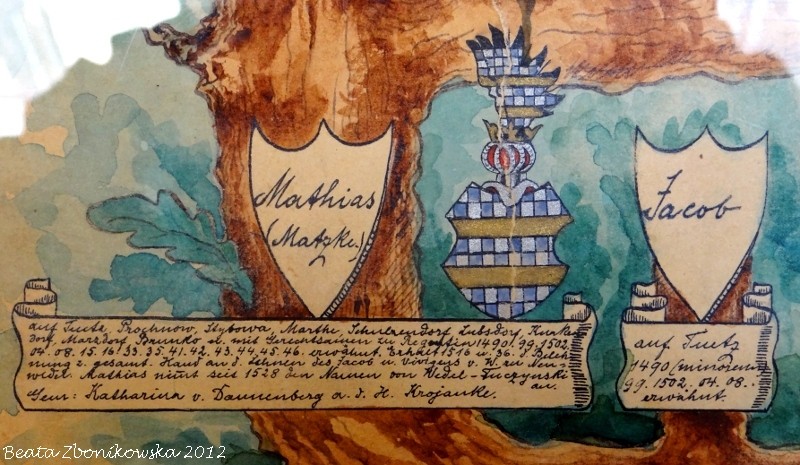 Mathias
(Matzke.)
Jacob
auf Tuetz. Prochnow, Stybowa, Marthe, Schulzendorf, Lubsdorf, Kunken-
dorf, Marzdorf Brunko etc. mit Gerechtsamen zu 1490. 99. 1502
04. 08. 15. 16. 33. 35. 41. 42. 43. 44. 45. 46. erwähnt. Erhält 1516 u. 36. d. Beleh-
nung z. gesamt. Hand an d. Lehnen des Jacob u. v. W. zu Neu-
wedel. Mathias nimt seit 1528 den Namen von Wedel-Tuczynski
an.
Gem: Katharina v. Dannenberg a. d. H. Krojanke.
auf Tuetz
1490 (minorenn)
99. 1502. 04. 08.
erwähnt.
Beata Zbonikowska 2012